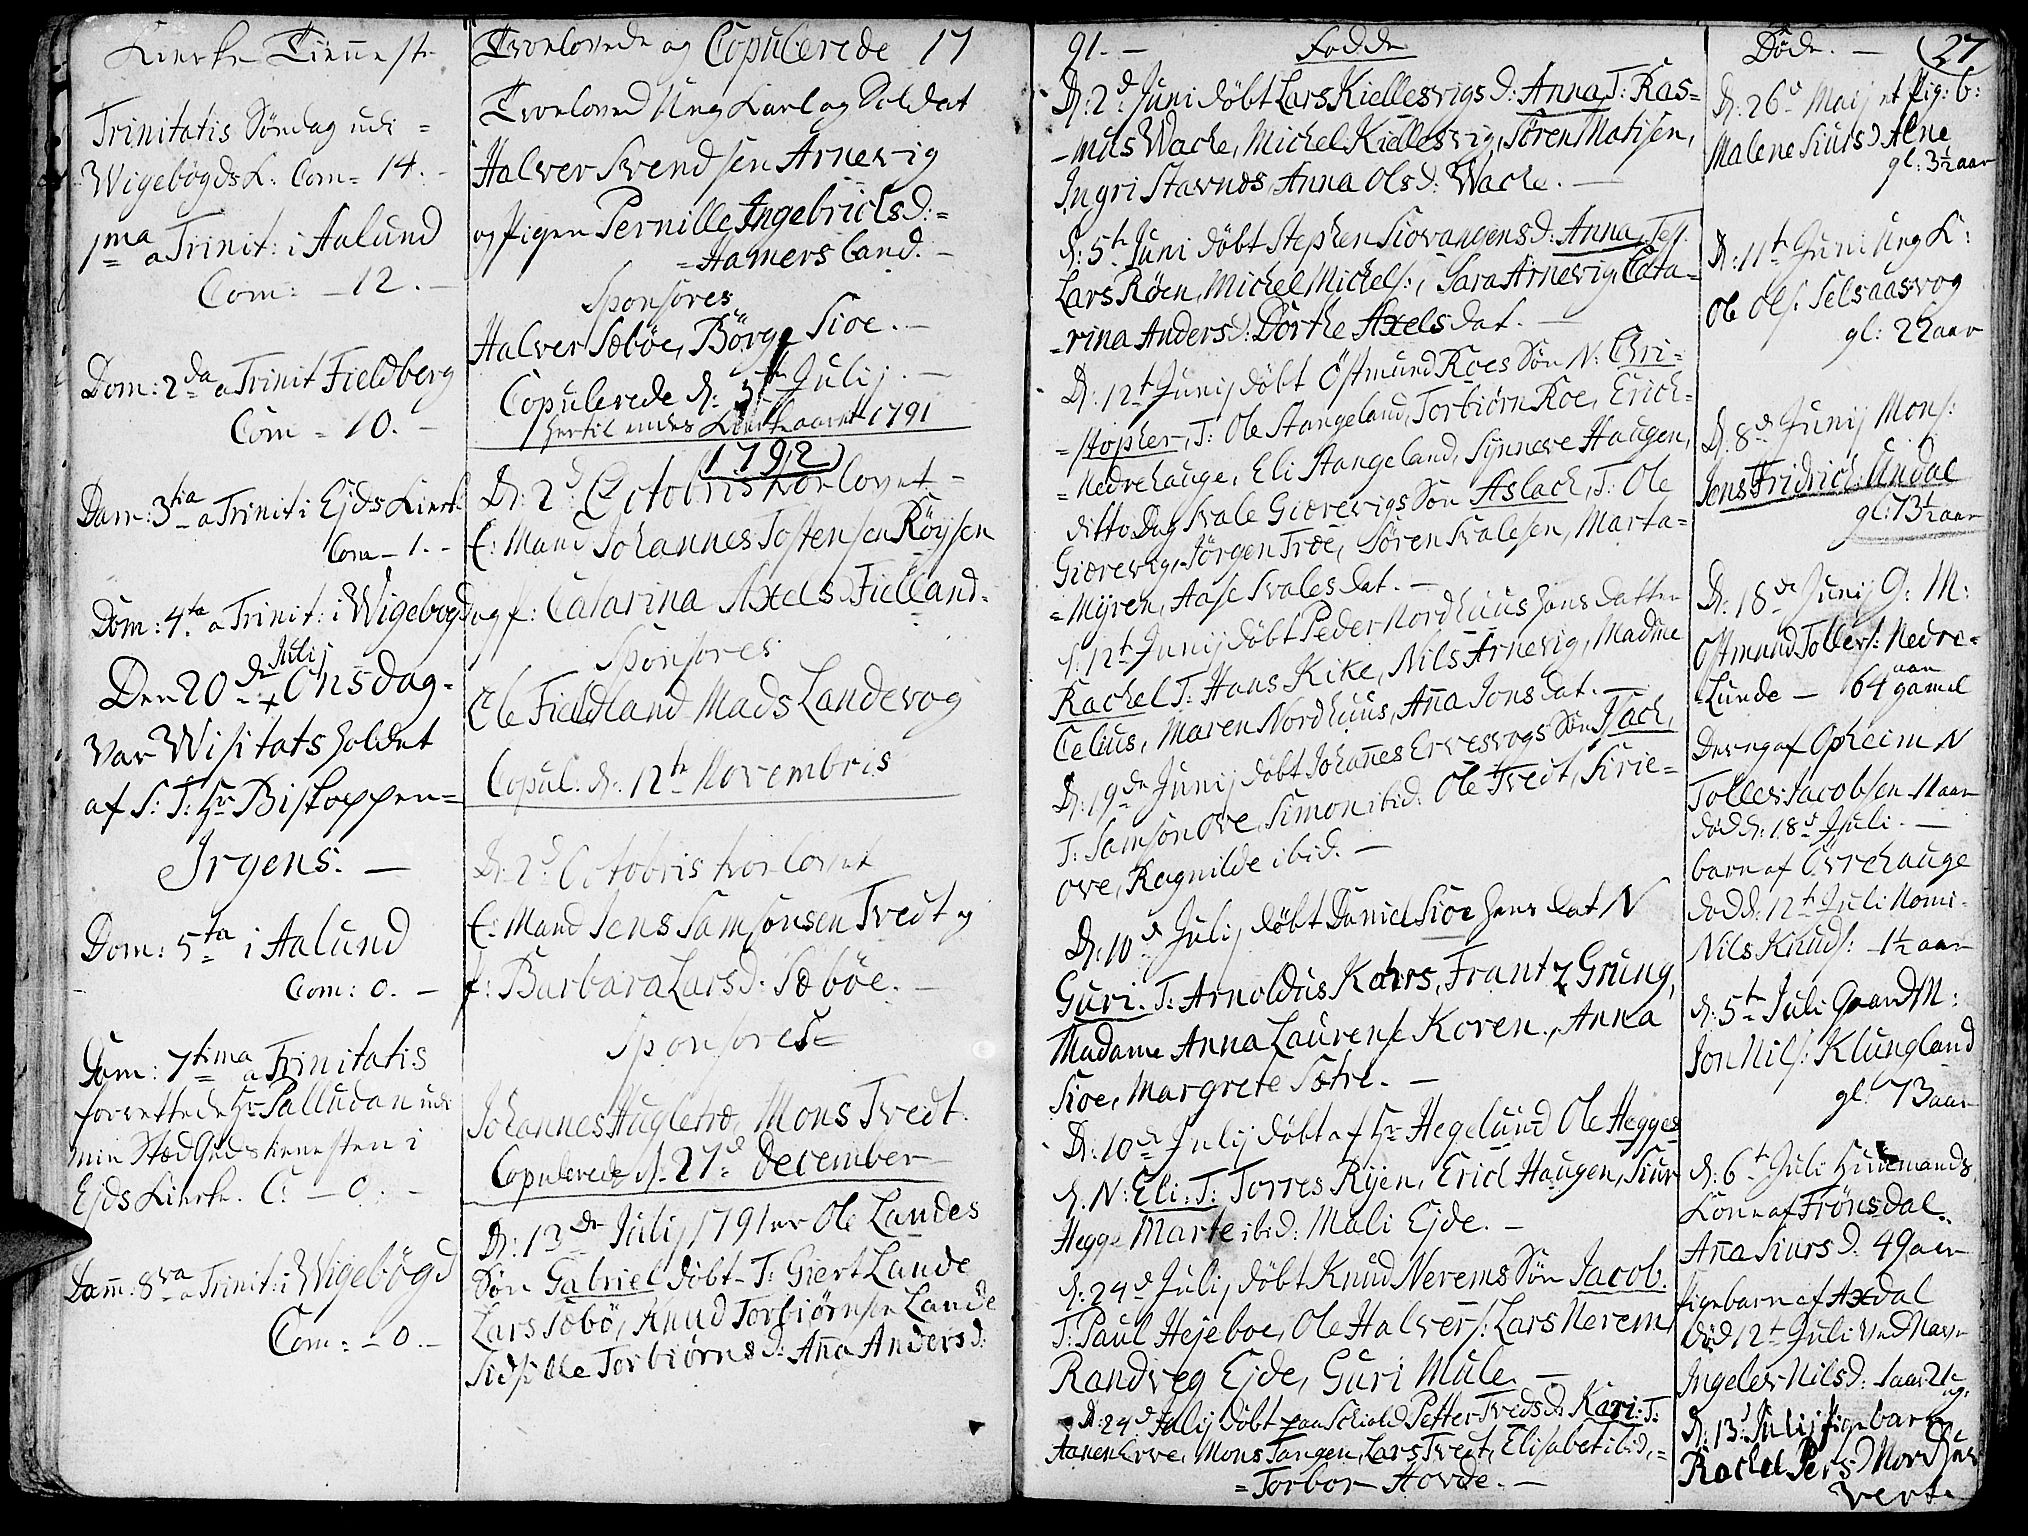 Kierke Tieneste
Trinitatis Söndag udi =
Wigebøgds K: Com= 14. -
1ma a Trinit: i Aalund
Com: - 12. -
Dom: 2da a Trinit Fieldberg
Com = 10. -
Dom: 3tia a Trinit: i Ejds Kierk
Com - 1. -
Dom: 4ta a Trinit: i Wigebøgd
Julij
Den 20de + Onsdag -
var Wisitats holdet
af S: T: Hr Biskoppen =
Irgens. -
Dom: 5ta i Aalund
Com: 0. -
Dom: 7tima a Trinitatis
forrettede Hr Palludan udi
min Stæd Guds tienesten i
Ejds Kierke. C: - 0. -
Dom: 8va a Trinit: i Wigebögd
Com: - 0 -
Trorlovede og Copulerede 17
Trorloved Ung Karl og Soldat
Halver Svendsen Arnevig
og Pigen Pernille Ingebrictsd: =
= Hamersland. -
Sponsores
Halver Sæböe, Börge Sioe. -
Copulerede d: 3 Julij. -
hertil endes Kierkeaaret 1791
1792
D: 2d Octobris trorlovet -
E: Mand Johannes Tostensen Röysen
og f: Catarina Axelsd Fielland -
Sponsores
Ole Fieldland Mads Landevog
Copul: d: 12te Novembris
D: 2d Octobris trorlovet
E: Mand Jens Samsonsen Tvedt og
f: Barbara Larsd: Sæböe. -
Sponsores
Johannes Hugletvæ, Mons Tvedt.
Copulerede d: 27d December
D: 13de Julij 1791 er Ole Landes
Sön Gabriel döbt - T: Giert Lande
Lars Sæbö, Knud Torbiörnsen Lande
Sidselle Torbiörnsd: Ana Andersd:
91. - Födde
D: 2d Juni döbt Lars Kiellesvigs d: Anna T: Ras=
-mus Wacke, Michel Kiellesvig, Sören Matisen,
Ingri Stavnæs, Anna Olsd: Wacke. -
d: 5te Juni döbt Stephen Siovangens d: Anna, Test
Lars Röen, Michel Michels:, Sara Arnevig, Cata-
-rina Andersd: Dorthe Axelsdat. -
D: 12te Junij döbt Östmund Roes Sön N: Chri-
=stopher, T: Ole Stangeland, Torbiörn Roe, Erich=
= Nedrehauge, Eli Stangeland, Synneve Haugen,
ditto Dag Svale Gierevigs Sön Aslach, T: Ole
Gierevig, Jörgen Træ, Sören Svalesen, Marta=
= Myren, Aase Svalesdat. -
d: 12te Junij döbt Peder Nordhuus hans datter
Rachel T: Hans Kike, Nils Arnevig, Madme
Celius, Maren Nordhuus, Ana Jonsdat. -
D: 19de Junij döbt Johanes Ervesvogs Sön Isach,
T: Samson Ove, Simon ibid: Ole Tvedt, Sirie=
Ove, Ragnilde ibid. -
D: 10de Julij döbt Daniel Sioe hans dat N
Guri. T: Arnoldus Kahrs, Frantz Grung,
Madame Anna Laurense Koren, Anna
Sioe, Margrete Sætre. -
D: 10de Julij döbt af Hr Hegelund Ole Hegges
d. N: Eli: T: Torres Ryen, Erich Haugen, Siur
Hegge Marte ibid: Mali Ejde. -
d: 24d Julij döbt Knud Nerems Sön Jacob.
T: Paul Hejeboe, Ole Halvers: Lars Nerem,
Randveg Ejde, Guri Mule. -
D: 24d Julij döbt paa Schiold Petter Tveds d: Kari: T:
Aanen Erve, Mons Tangen, Lars Tvedt, Elisabet ibid, =
= Torbor Hovde. -
Döde. - 27
D: 26d Maij et Pig: b:
Malene Siursd Alne
gl: 3½ aar
D: 11te Juni Ung K:
Ole Ols: Selsaasvog
gl: 22 aar
D: 8de Junij Mons:
Jens Fridrich Undal
gl: 73½ aar
D: 18de Junij G: M:
Ostmund Tollefs: Nedre=
Lunde - 64 aar gamel
Dreng af Opheim N
Tolles Jacobsen 11 aar
död d: 18d Juli. -
barn af Övrehauge
död d: 12te Juli Nomi-
Nils Knuds: 1½ aar
d: 5te Juli Gaard M:
Jon Nils: Klungland
gl: 73 aar
d: 6te Juli Huusmands
Kone af Frönsdal
Ana Siursd: 49 aar
Pigebarn af Axdal
död 12te Juli ved Navn
Ingeler Nilsd: 1 aar 21 ug:
D: 13d Julij Pigebarn
Rachel Persd Nordhus
verte